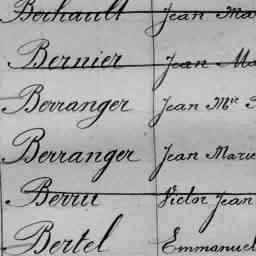 Bechault Jean Ma
Bernier Jean Ma
Berranger Jean Mie
Berranger Jean Marie
Berru Victor Jean
Bertel Emmanuel